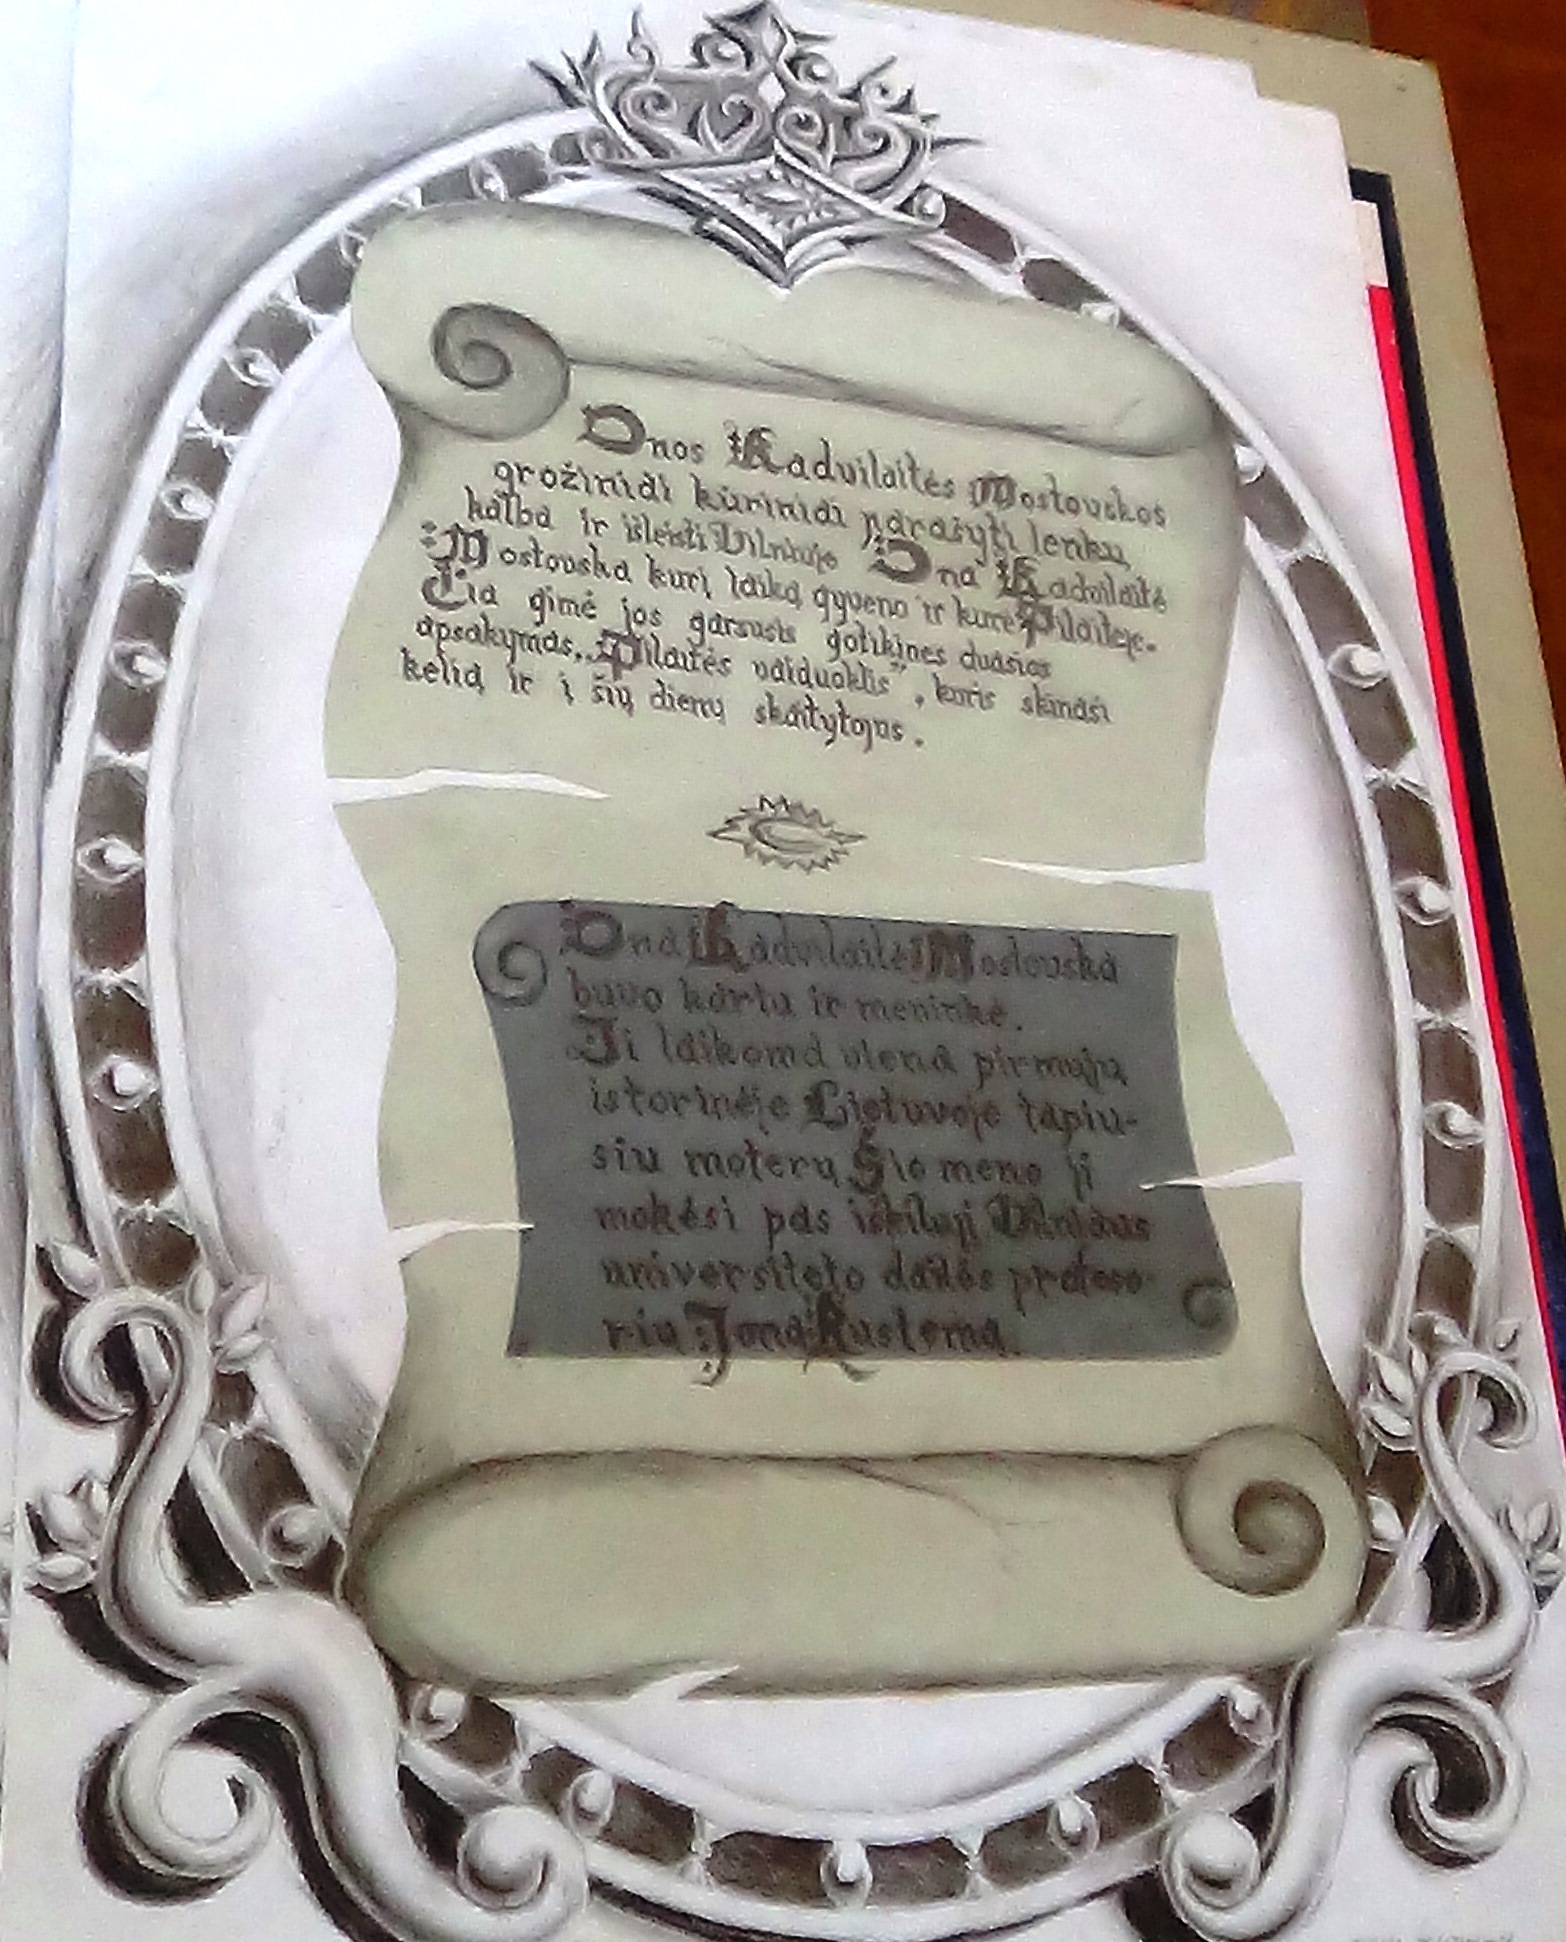 Onos Radvilaitės Mostovskos
grožiniai kūriniai parašyti lenkų
kalba ir išleisti Vilniuje Ona Radvilaitė
Mostovska kurį laiką gyveno ir kūrė Pilaitėje.
Čia gimė jos garsusis gotikinės dvasios
apsakymas „Pilaitės vaiduoklis", kuris skinasi
kelią ir į šių dienų skaitytojus.
Ona Radvilaitė Mostovska
buvo kartu ir menininkė.
Ji laikoma viena pirmųjų
istorinėje Lietuvoje tapiu-
sių moterų Šio meno ji
mokėsi pas iškilųjį Vilniaus
universiteto dailės profeso-
rių Joną Rustemą.